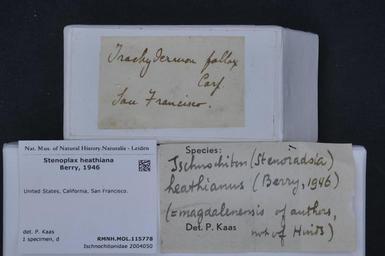 Trachydermon pallax
Carp.
San Francisco.
Nat. Mus. of Natural History Naturalis - Leiden
Stenoplax heathiana
Berry, 1946
United States, California, San Francisco.
det. P. Kaas
1 specimen, d
RMNH.MOL.115778
Ischnochitonidae 2004050
Species:
Ischnochiton (Stenoradsia)
heathianus (Berry, 1946)
(= magdalenensis of authors,
not of Hinds)
Det. P. Kaas